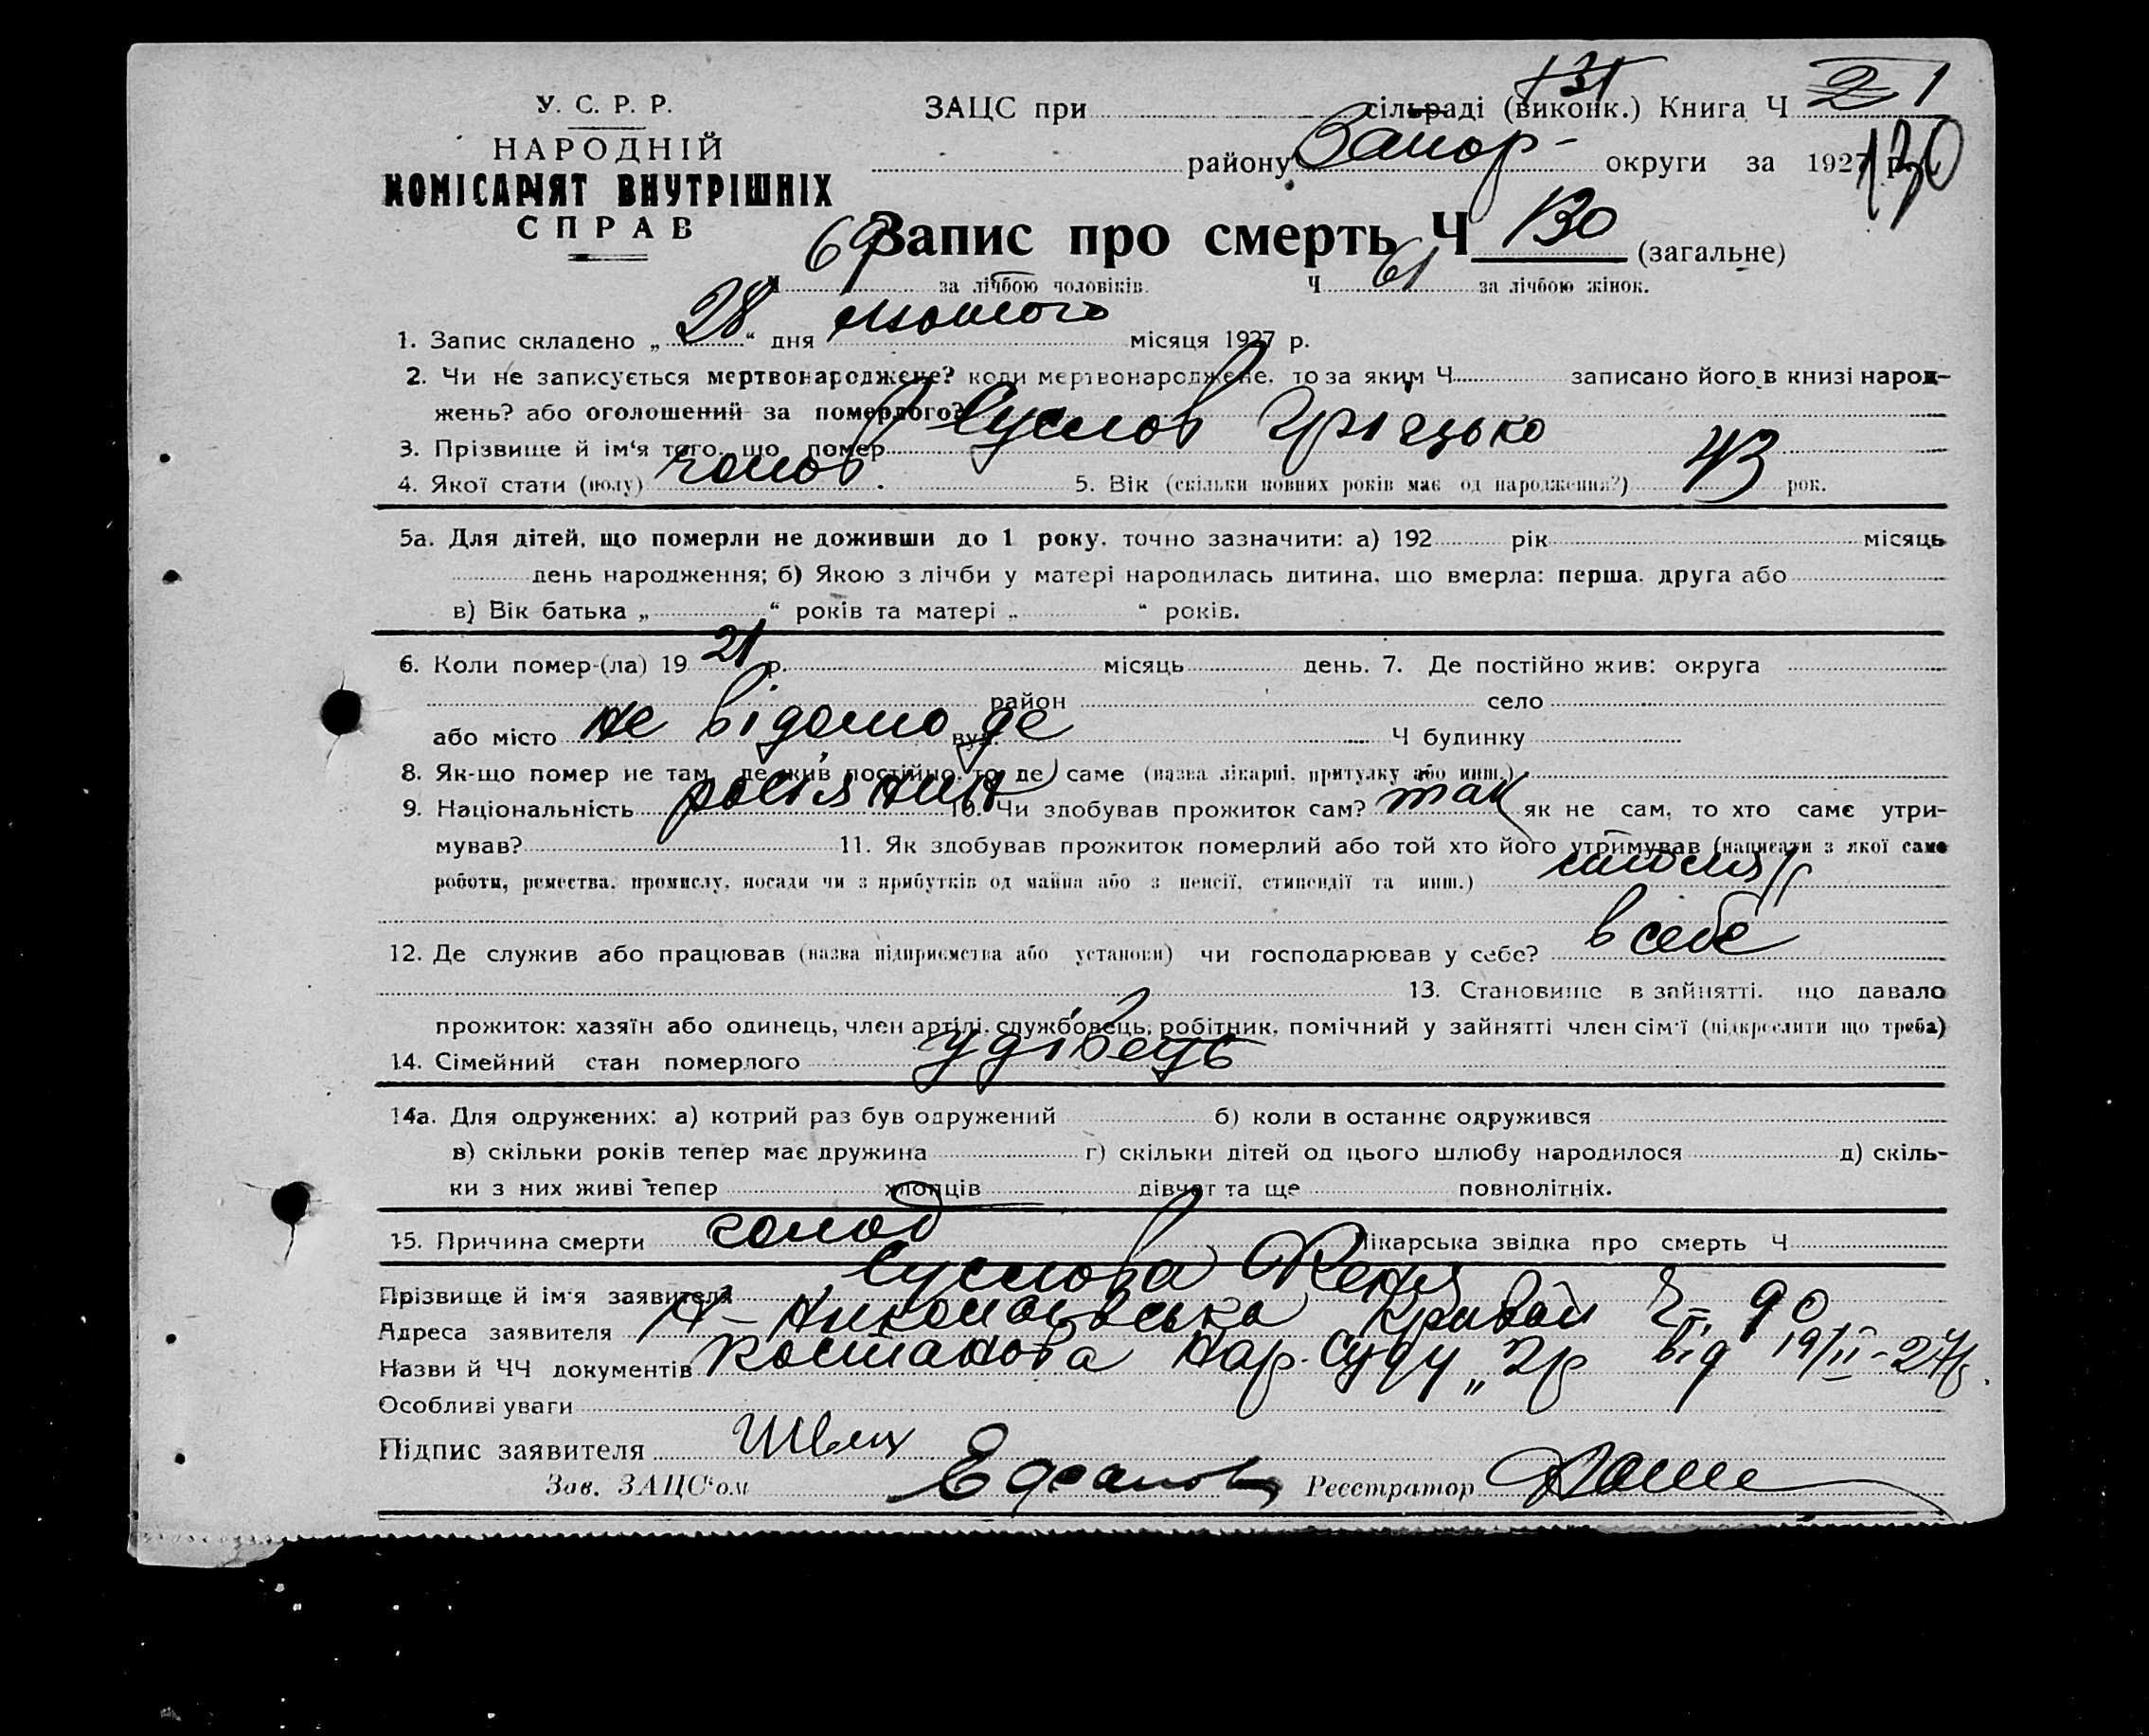 У. С. Р. Р.
НАРОДНІЙ
КОМІСАРІЯТ ВНУТРІШНІХ
СПРАВ
131
ЗАЦС при сільраді (виконк.) Книга Ч 2 1
району Запор- округи за 1927 р.
130
Запис про смерть Ч 130 (загальне)
Ч 69 за лічбою чоловіків. Ч 61 за лічбою жінок.
1. Запис складено „ 28 “ дня лютого місяця 1927 р.
2. Чи не записується мертвонароджене? коли мертвонароджене, то за яким Ч записано його в книзі народ-
жень? або оголошений за померлого?
3. Прізвище й ім'я того, що помер Суслов Грицько
4. Якої стати (полу) чолов. 5. Вік (скільки повних років має од народження?) 43 рок.
5а. Для дітей, що померли не доживши до 1 року, точно зазначити: а) 192 рік місяць
день народження; б) Якою з лічби у матері народилась дитина, що вмерла: перша, друга або
в) Вік батька „ “ років та матері „ “ років.
6. Коли помер-(ла) 19 21 р. місяць день. 7. Де постійно жив: округа
район село
або місто не відомо де вул. Ч будинку
8. Як-що помер не там, де жив постійно, то де саме (назва лікарні, притулку або инш.)
9. Національність росіянин 10. Чи здобував прожиток сам? так як не сам, то хто саме утри-
мував? 11. Як здобував прожиток померлий або той хто його утримував (написати з якої саме
роботи, ремества, промислу, посади чи з прибутків од майна або з пенсії, стипендії та инш.) столяр
12. Де служив або працював (назва підприємства або установи) чи господарював у себе? в себе
13. Становище в зайнятті, що давало
прожиток: хазяїн або одинець, член артілі, службовець, робітник, помічний у зайнятті член сім'ї (підкреслити що треба)
14. Сімейний стан померлого удівець
14а. Для одружених: а) котрий раз був одружений б) коли в останнє одружився
в) скільки років тепер має дружина г) скільки дітей од цього шлюбу народилося д) скіль-
ки з них живі тепер хлопців дівчат та ще повнолітніх.
15. Причина смерти голод Лікарська звідка про смерть Ч
Прізвище й ім'я заявителя Суслова Женя
Адреса заявителя Н- Николаївська Кривая Ч= 90
Назви й ЧЧ документів Постанова Нар. Суду „2р від 19/II-27р.
Особливі уваги
Підпис заявителя
Зав. ЗАЦС'ом Реєстратор